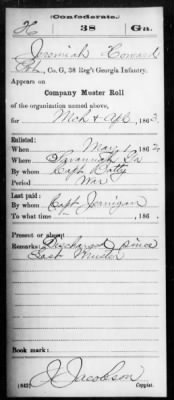 (Confederate.)
H 38 Ga.
Jeremiah Howard
Co. G, 38 Reg't Georgia Infantry.
Appears on
Company Muster Roll
of the organization named above,
for Mch & Apl, 1863.
Enlisted:
When May 1, 1862
Where Savannah Ga
By whom Capt Batty
Period War
Last paid:
By whom Capt Jernigan
To what time , 186 .
Present or absent
Remarks: Discharged since
Last Muster
Book mark:
(642) J Jacobson
Copyist.